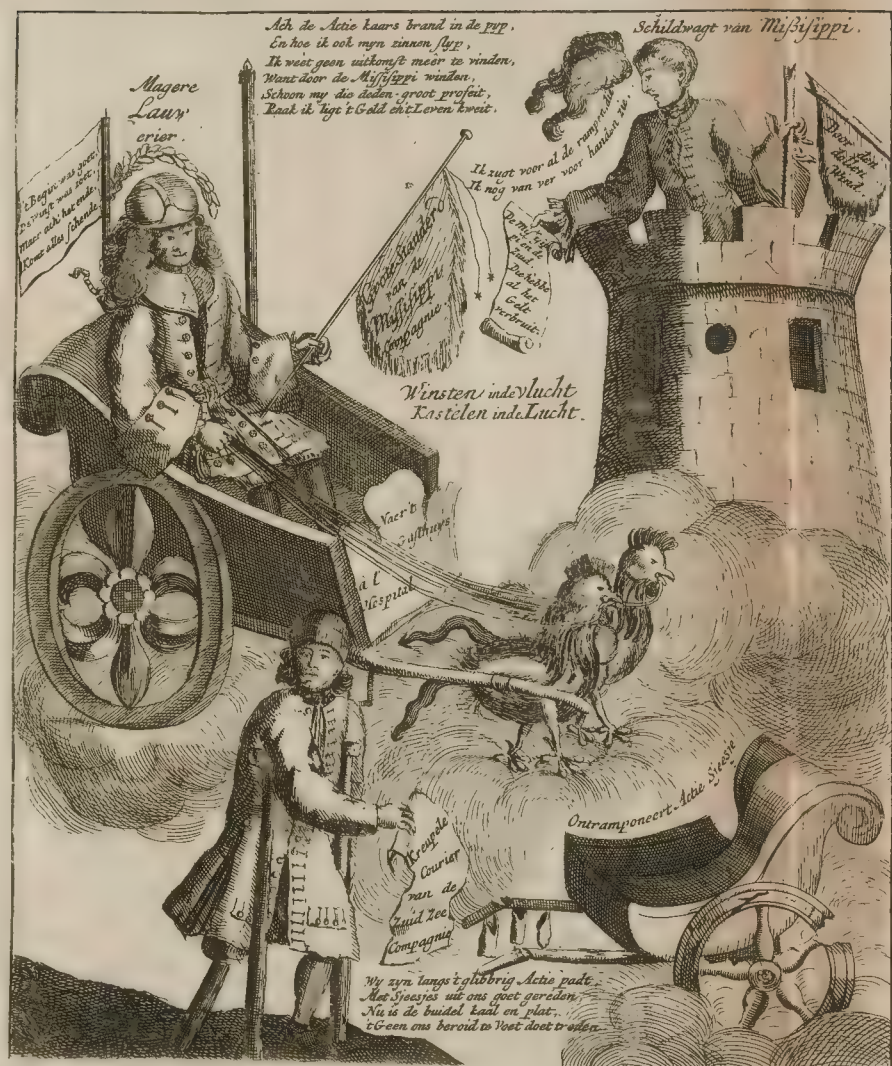 Ach de Actie kaars brand in de pyp,
En hoe ik ook myn zinnen slyp,
Ik weet geen uitkomst meer te vinden,
Want door de Missisippi winden,
Schoon my die deden groot profeit,
Raak ik ligt 't Geld en 't Leven kweit.
Schildwagt van Missisippi.
Magere
Lauw
erier.
't Begin was goet,
De Winst was zoet,
Maer ach! het ende
Komt alles schende
Groote Stander
van de
Missisippi
Compagnie
Ik zugt voor al de rampen, die
Ik nog van ver voor handen zie.
De Missisip
pi en de
Zuid,
Die hebbe
al het
Gelt
verbruit.
Door
den
Wind.
Winsten in de Vlucht
Kastelen in de Lucht.
Naer 't
Gasthuys
á l'
Hespital
Ontramponeert Actie Sjeesje
Kreupele
Courier
van de
Zuid Zee
Compagnie
Wy zyn langs 't glibbrig Actie padt
Met Sjeesjes uit ons goet gereden,
Nu is de buidel kaal en plat,
't Geen ons beroid te Voet doet treden